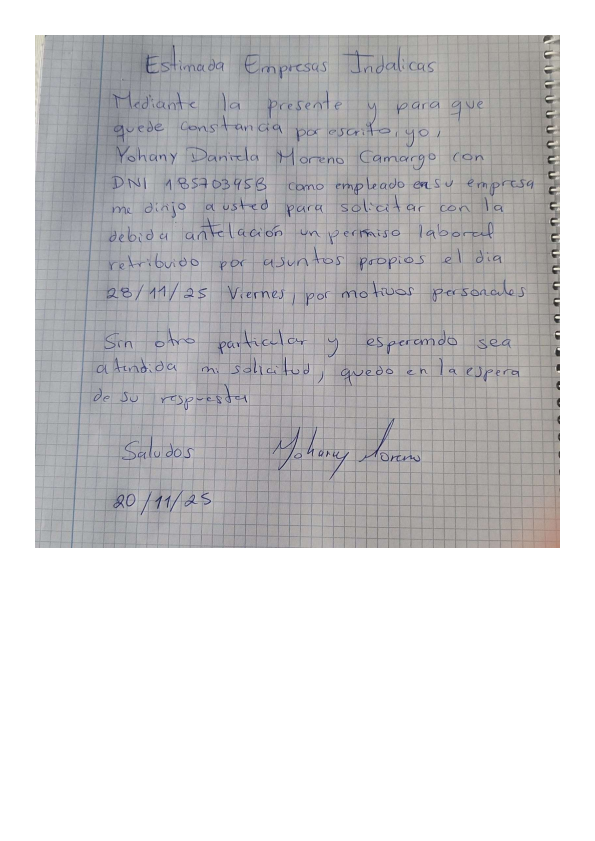 Estimada Empresas Indalicas
Mediante la presente y para que
quede constancia por escrito, yo,
Yohany Daniela Moreno Camargo con
DNI 18570395B como empleado en su empresa
me dirijo a usted para solicitar con la
debida antelación un permiso laboral
retribuido por asuntos propios el dia
28/11/25 Viernes, por motivos personales
Sin otro particular y esperando sea
atendida mi solicitud, quedo en la espera
de su respuesta
Saludos Yohany Moreno
20/11/25